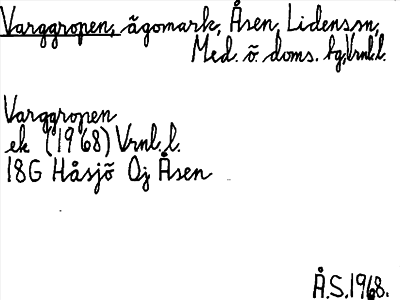 Varggropen, ägomark, Åsen, Lidens sn,
Med. ö. doms. bg, Vrnl. l.
Varggropen
ek (1968) Vrnl. l.
18G Håsjö 0j Åsen
Å.S. 1968.